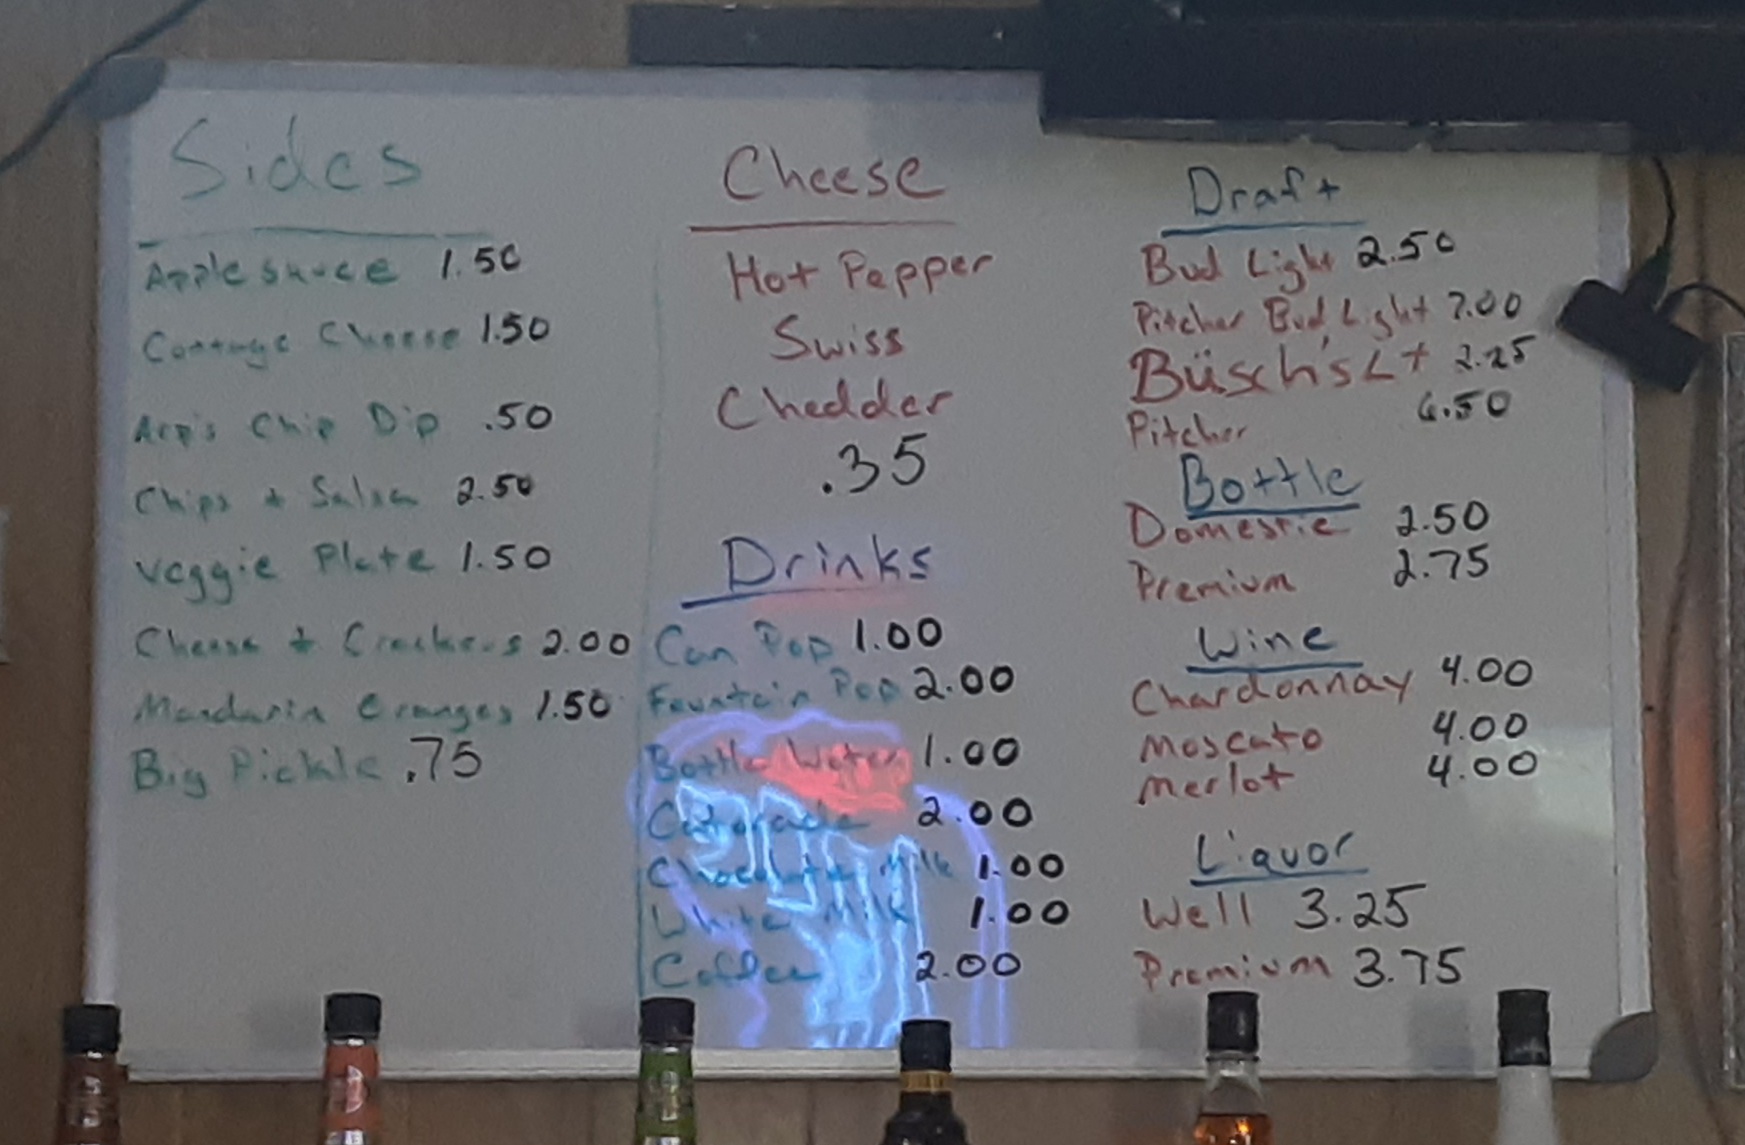 Sides
Applesauce 1.50
Cottage Cheese 1.50
Arp's Chip Dip .50
Chips + Salsa 2.50
Veggie Plate 1.50
Cheese + Crackers 2.00
Mandarin Oranges 1.50
Big Pickle .75
Cheese
Hot Pepper
Swiss
Chedder
.35
Drinks
Can Pop 1.00
Fountain Pop 2.00
Bottle Water 1.00
Gatorade 2.00
Chocolate Milk 1.00
White Milk 1.00
Coffee 2.00
Draft
Bud Light 2.50
Pitcher Bud Light 7.00
Büsch's Lt 2.25
Pitcher 6.50
Bottle
Domestic 2.50
Premium 2.75
Wine
Chardonnay 4.00
Moscato 4.00
Merlot 4.00
Liquor
Well 3.25
Premium 3.75